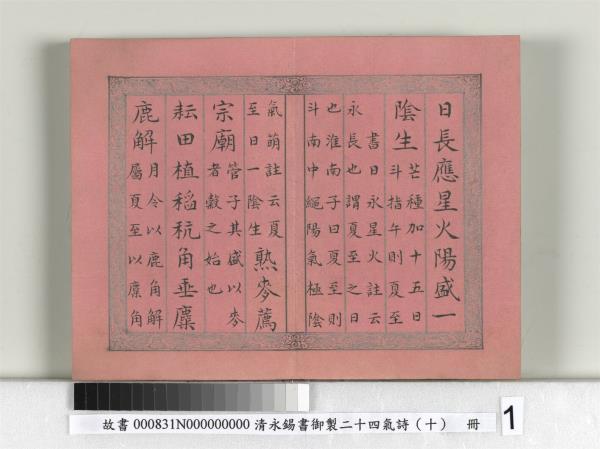 日長應星火陽盛一
陰生
芒種加十五日
斗指午則夏至
書日永星火註云
永長也謂夏至之日
也淮南子曰夏至則
斗南中繩陽氣極陰
氣萌註云夏
至日一陰生
熟麥薦
宗廟
管子其盛以麥
者穀之始也
耘田植稻秔角垂麋
鹿解
月令以鹿角解
屬夏至以麋角
故書 000831N000000000 清永錫書御製二十四氣詩(十) 冊
1